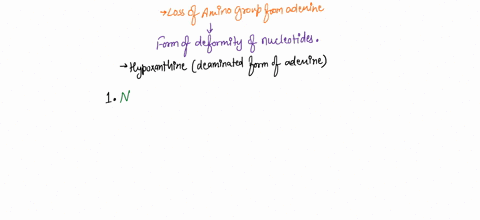 →Loss of Amino Group from adenine
↓
Form of deformity of nucleotides.
→Hypoxanthine (deaminated form of adenine)
1. N